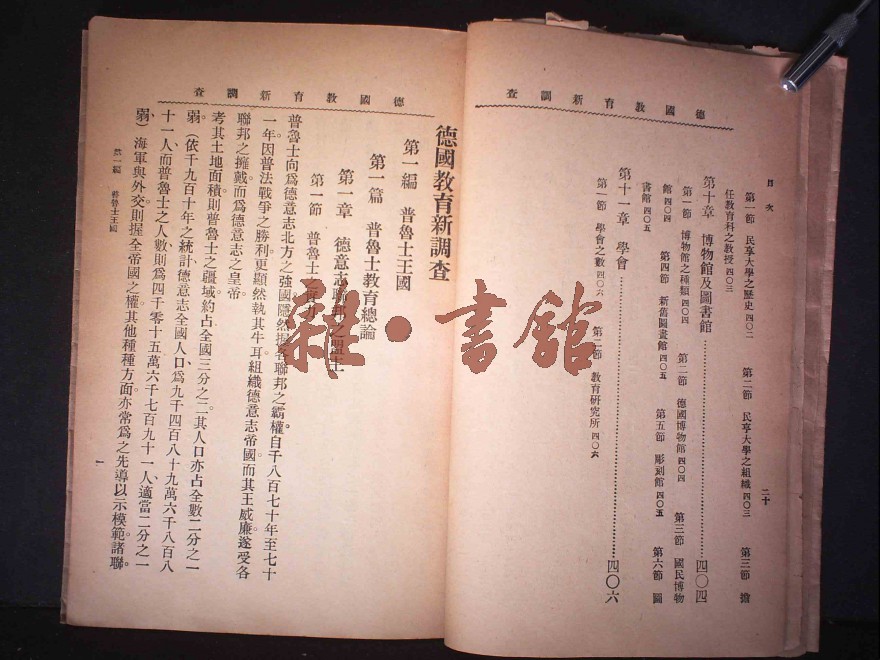 德國教育新調查
目次
二十
第一節 民亨大學之歷史 四〇二 第二節 民亨大學之組織 四〇三 第三節 擔
任教育科之教授 四〇三
第十章 博物館及圖書館 四〇四
第一節 博物館之種類 四〇四 第二節 德國博物館 四〇四 第三節 國民博物
館 四〇四 第四節 新舊圖畫館 四〇五 第五節 彫刻館 四〇五 第六節 圖
書館 四〇五
第十一章 學會 四〇六
第一節 學會之數 四〇六 第二節 教育研究所 四〇六
德國教育新調查
德國教育新調查
第一編 普魯士王國
第一篇 普魯士教育總論
第一章 德意志聯邦之盟主
第一節 普魯士之
普魯士向爲德意志北方之強國隱然握各聯邦之霸權。自千八百七十年至七十
一年因普法戰爭之勝利更顯然執其牛耳組織德意志帝國而其王威廉遂受各
聯邦之擁戴而爲德意志之皇帝。
考其土地面積則普魯士之疆域約占全國三分之二其人口亦占全數二分之一
弱。（依千九百十年之統計德意志全國人口爲九千四百八十九萬六千八百八
十一人、而普魯士之人數則爲四千零十五萬六千七百九十一人、適當二分之一
弱）海軍與外交則握全帝國之權其他種種方面亦常爲之先導以示模範諸聯
第一編 普魯士王國
一
雜·書館